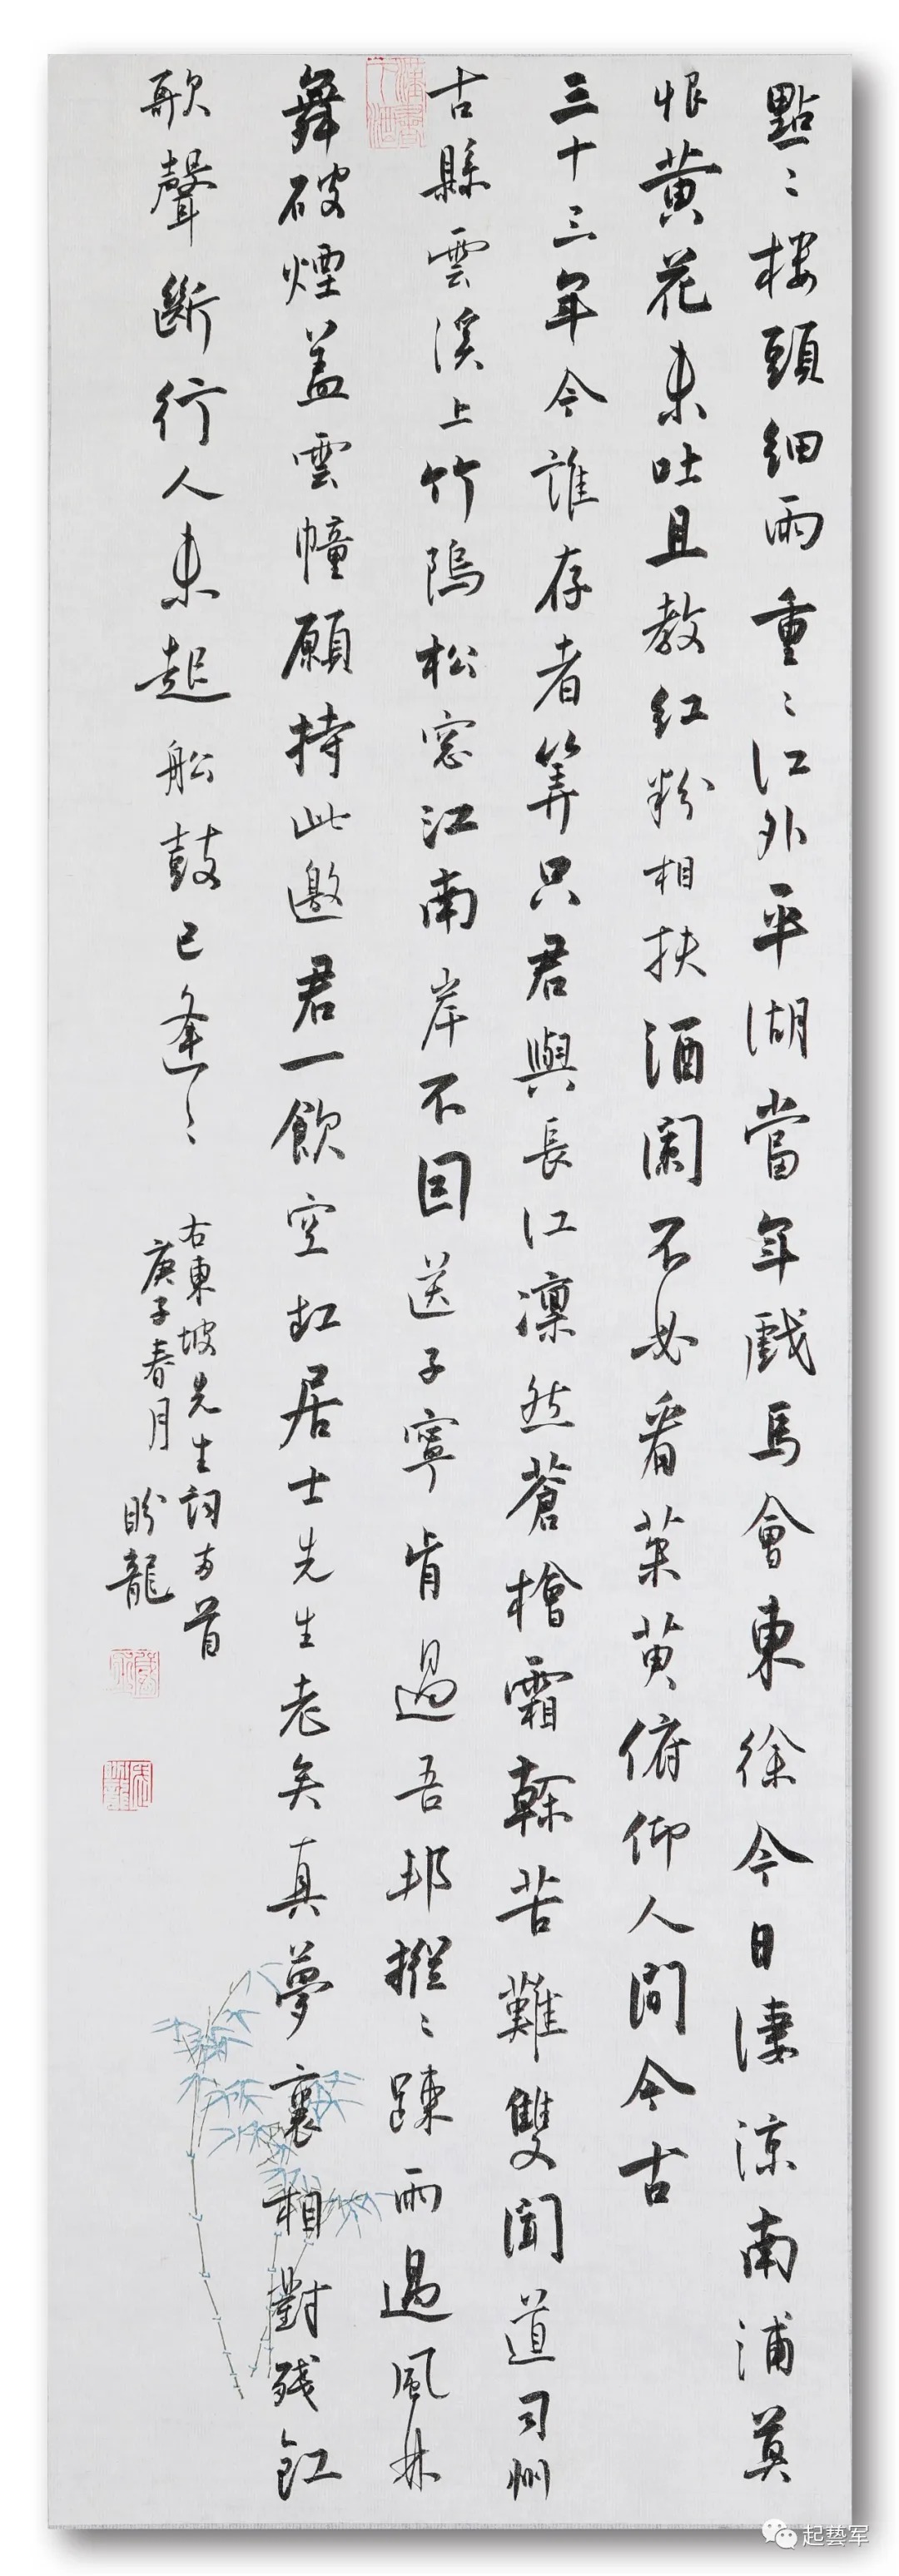 點〻樓頭細雨重〻江外平湖當年戲馬會東徐今日淒涼南浦莫
恨黄花未吐且教紅粉相扶酒闌不必看茱萸俯仰人間今古
三十三年今誰存者筭只君與長江凜然蒼檜霜榦苦難雙聞道司州
古縣雲溪上竹塢松窓江南岸不因送子寧肯過吾邦摐〻踈雨過風林
舞破煙蓋雲幢願持此邀君一飲空缸居士先生老矣真夢裏相對殘釭
歌聲斷行人未起船鼓已逢〻
右東坡先生詞兩首
庚子春月
盼龍
起藝军